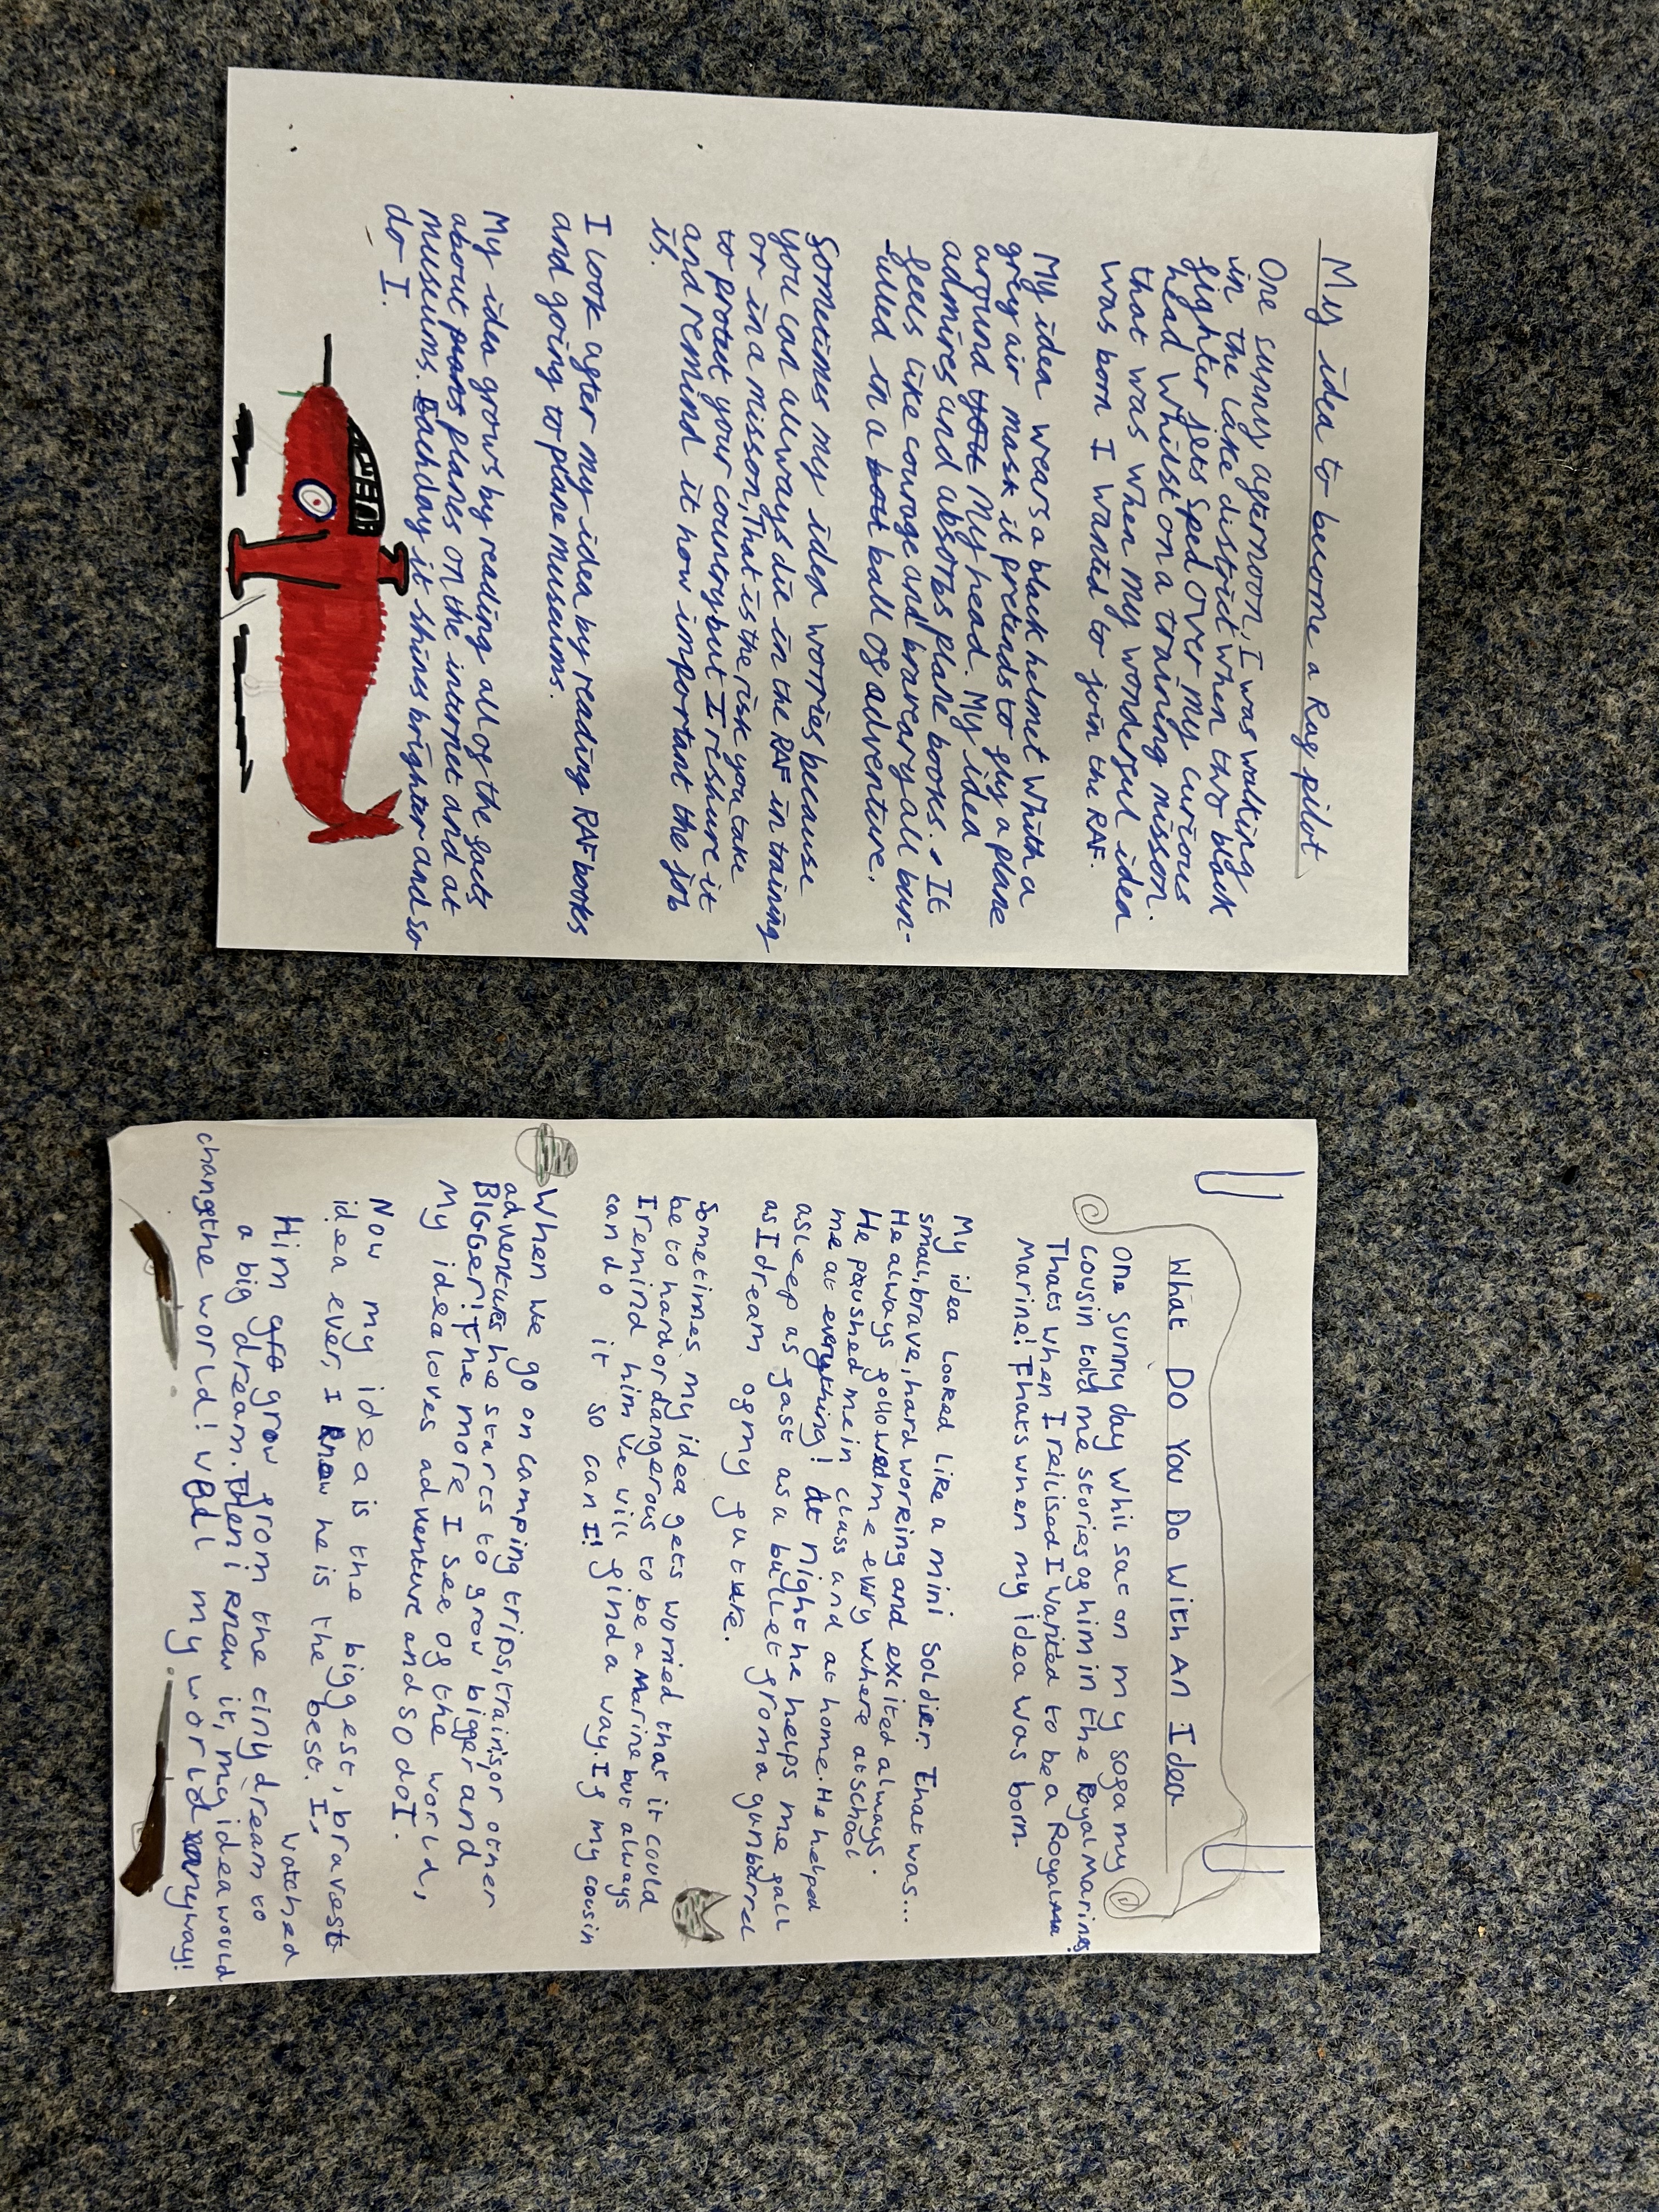 My idea to become a Raf pilot
One sunny afternoon, I was walking
in the lake district when two black
fighter jets sped over my curious
head whilst on a training misson.
that was when my wonderful idea
was born I wanted to join the RAF.
My idea wears a black helmet whith a
grey air mask it pretends to fly a plane
around My head. My idea
admires and absorbs plane books. It
feels like courage and braveary all bun-
-uled in a ball of adventure.
Sometimes my idea worries because
you can allways die in the RAF in training
or in a misson, That is the risk you take
to protect your country but I reshure it
and remind it how important the job
is.
I look after my idea by reading RAF books
and going to plane museums.
My idea grows by reading all of the facts
about planes on the internet and at
museums. Each day it shines brighter and so
do I.
What Do You Do With An Idea
One sunny day whil sat on my sofa my
cousin told me stories of him in the Royal Marines
Thats when I reilised I wanted to be a Royal
Marine! Thats when my idea was born.
My idea looked like a mini soldier. That was...
small, brave, hard working and excited always.
He always followed me every where at school
He poushed me in class and at home. He helped
me at everything! At night he helps me fall
asleep as fast as a bullet from a gun barrel
as I dream of my future.
Sometimes my idea gets worried that it could
be to hard or dangerous to be a Marine but always
I remind him we will find a way. If my cousin
can do it so can I!
When we go on camping trips, trains, or other
adventures he starts to grow bigger and
BIGGER! The more I see of the world,
My idea loves adventure and so do I.
Now my idea is the biggest, bravest
idea ever, I know he is the best. I, watched
Him grow from the tiny dream to
a big dream. Then i knew it, my idea would
change the world! well my world anyway!